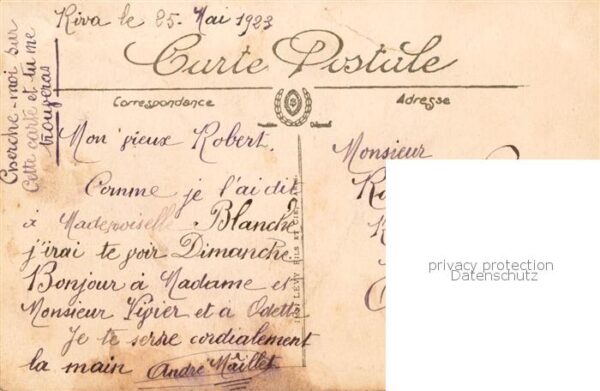 Riva le 25. Mai 1923
Cherche-moi sur
Cette carte et tu me
trouveras
Carte Postale
Correspondance
Adresse
Mon vieux Robert.
Comme je l'ai dit
à Mademoiselle Blanche
j'irai te voir Dimanche.
Bonjour à Madame et
Monsieur Vivier et à Odette
Je te serre cordialement
la main André Maillet
LEVY FILS ET CIE, PARIS
Monsieur
privacy protection
Datenschutz